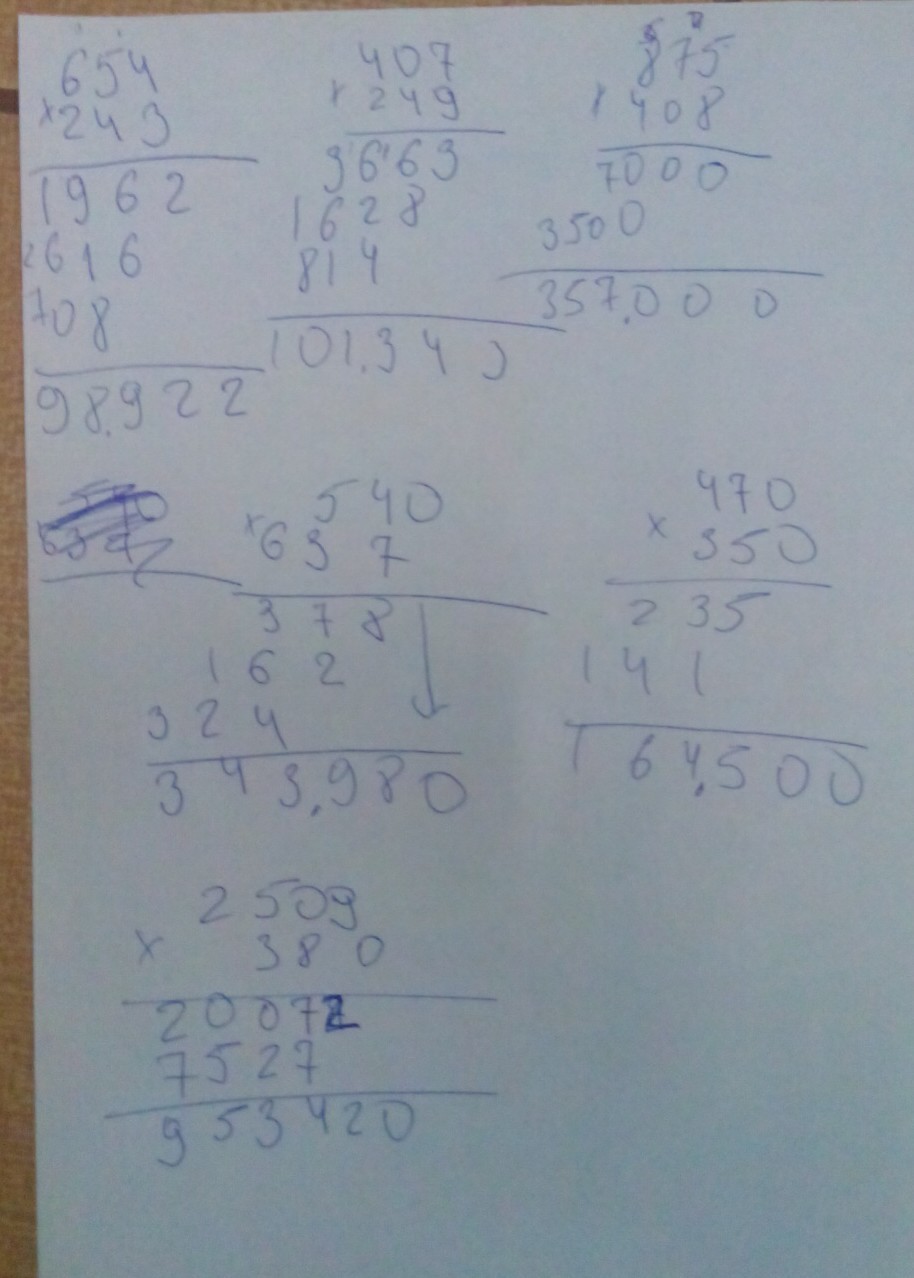 654
×243
1962
2616
708
98.922
407
×249
3669
1628
814
101.343
875
×408
7000
3500
357.000
540
×637
378
162
324
343.980
470
×350
235
141
164.500
2509
×380
20072
7527
953420